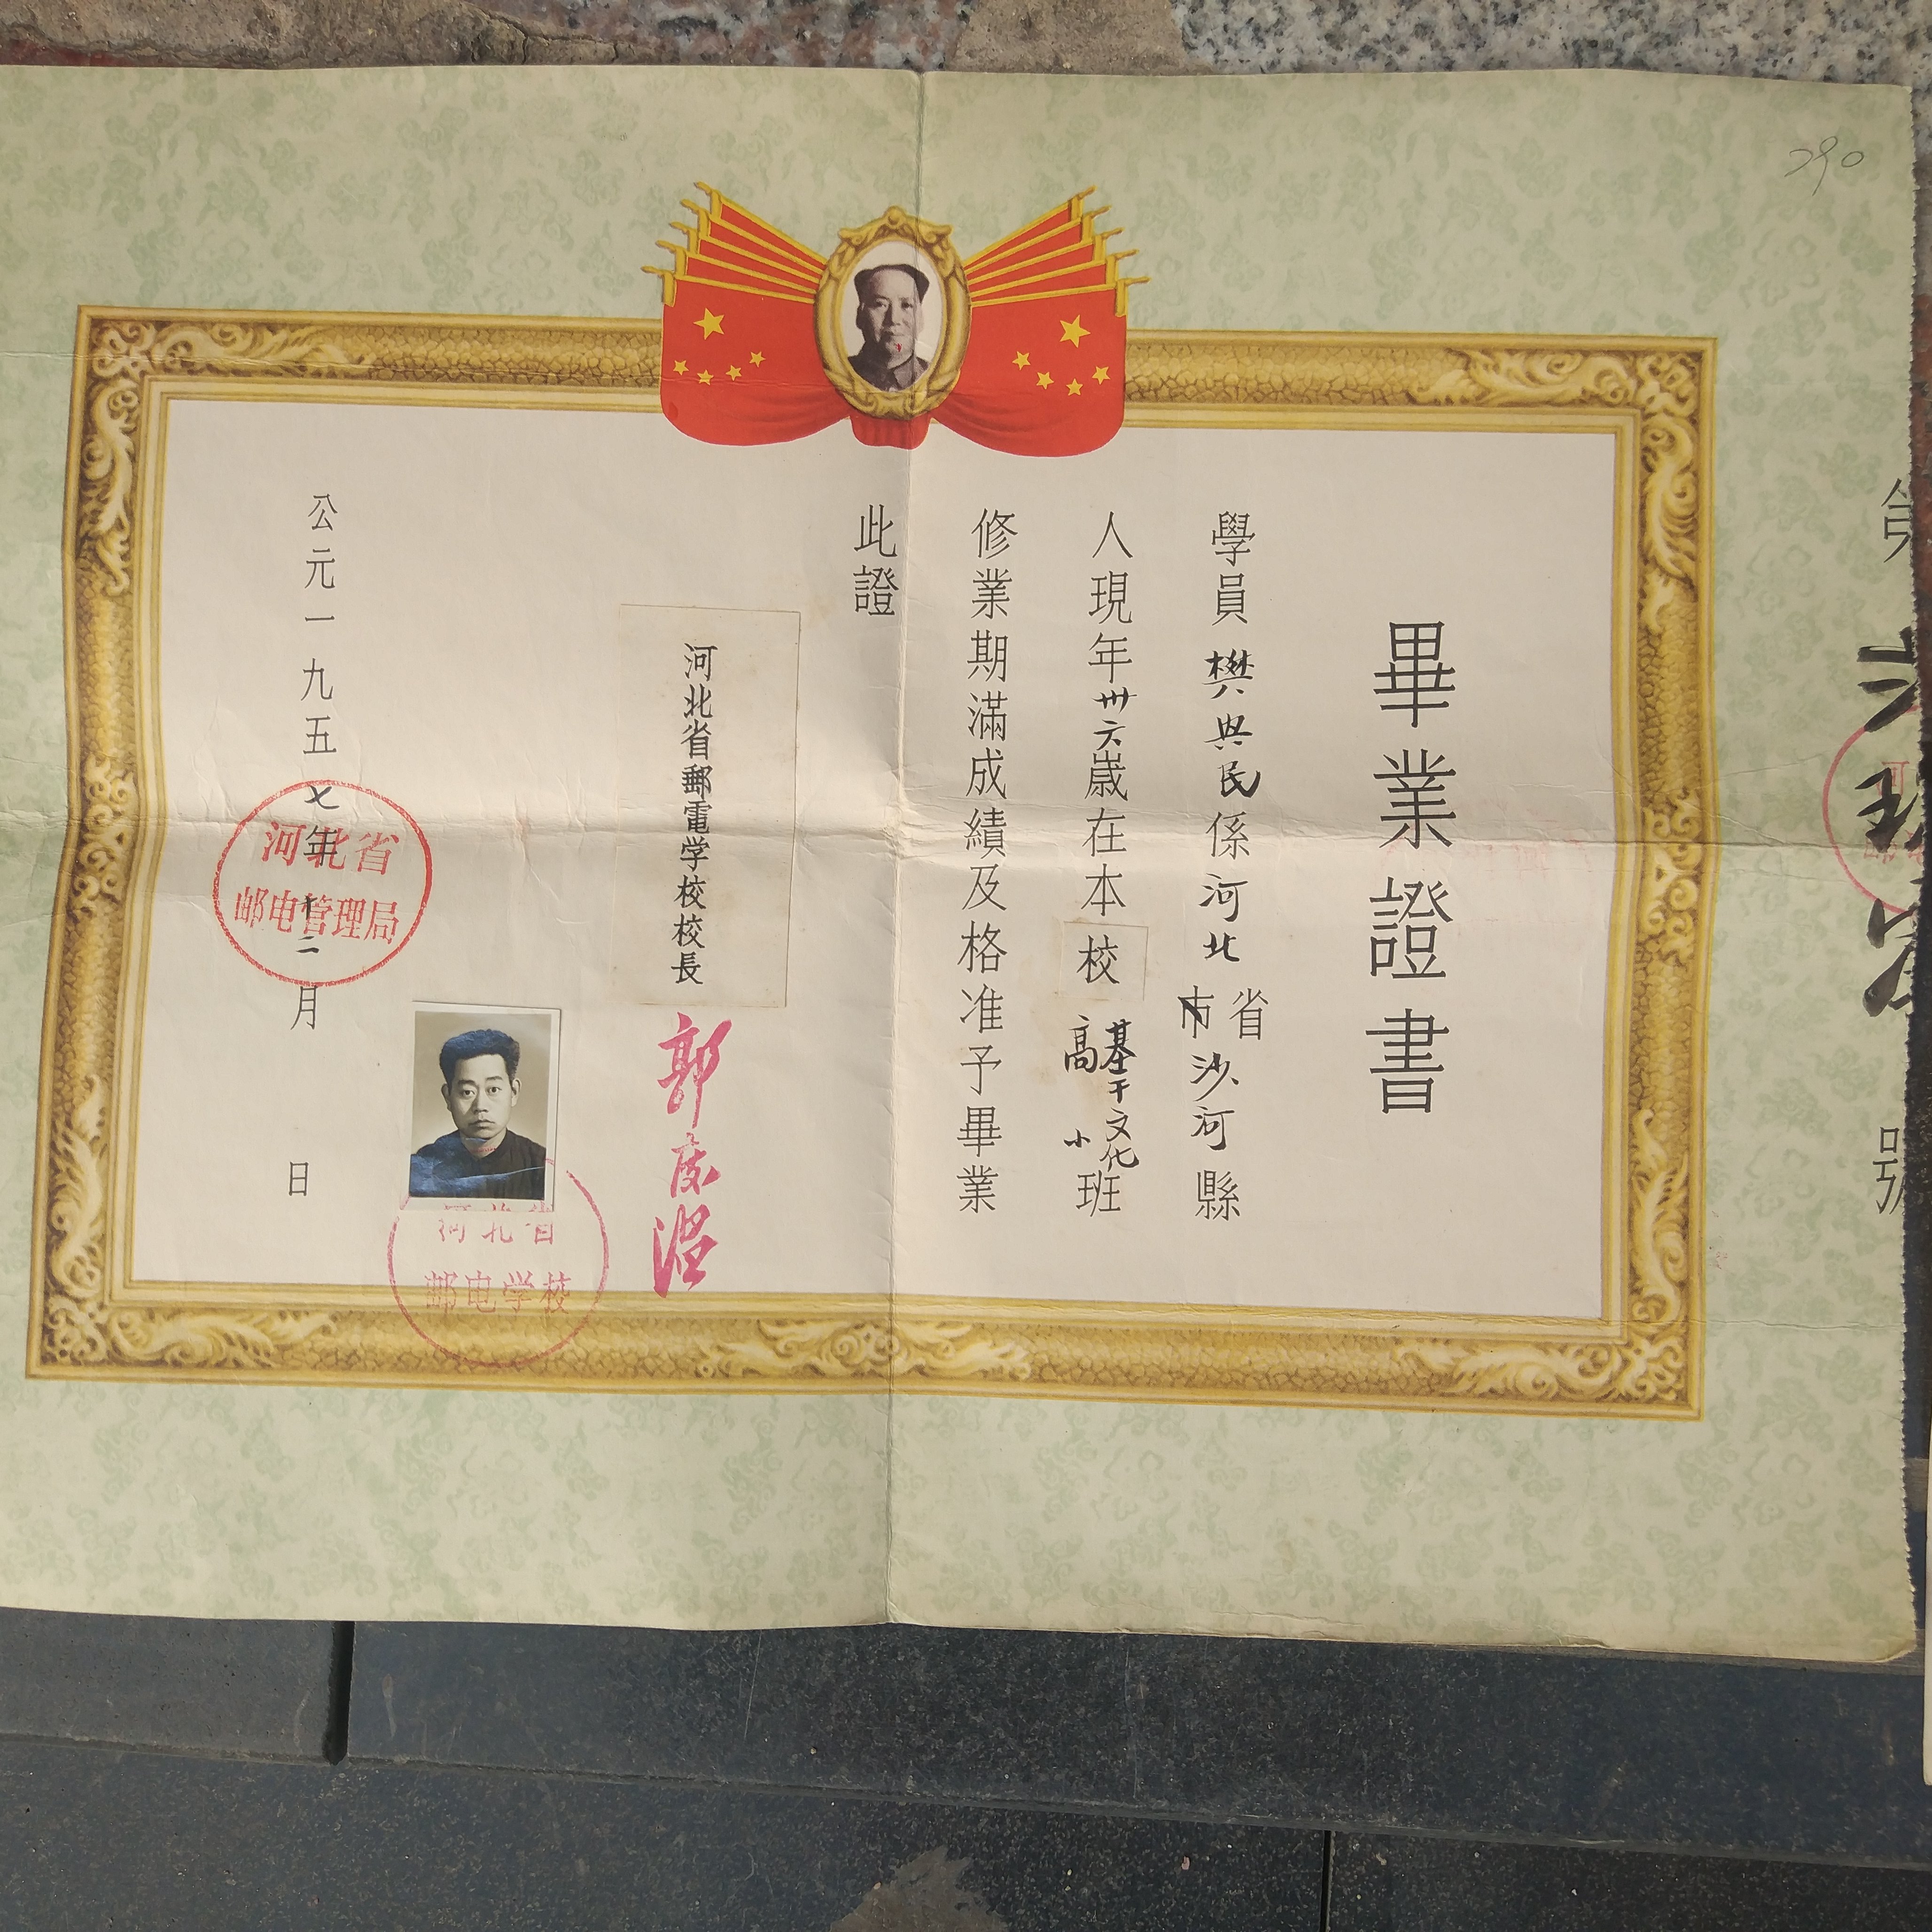 290
第
號
畢業證書
學員樊與民係河北省市沙河縣
人現年卅六歲在本校基干文化高小班
修業期滿成績及格准予畢業
此證
河北省郵電学校校長
郭
公元一九五七年十二月日
河北省
邮电管理局
河北省
邮电学校